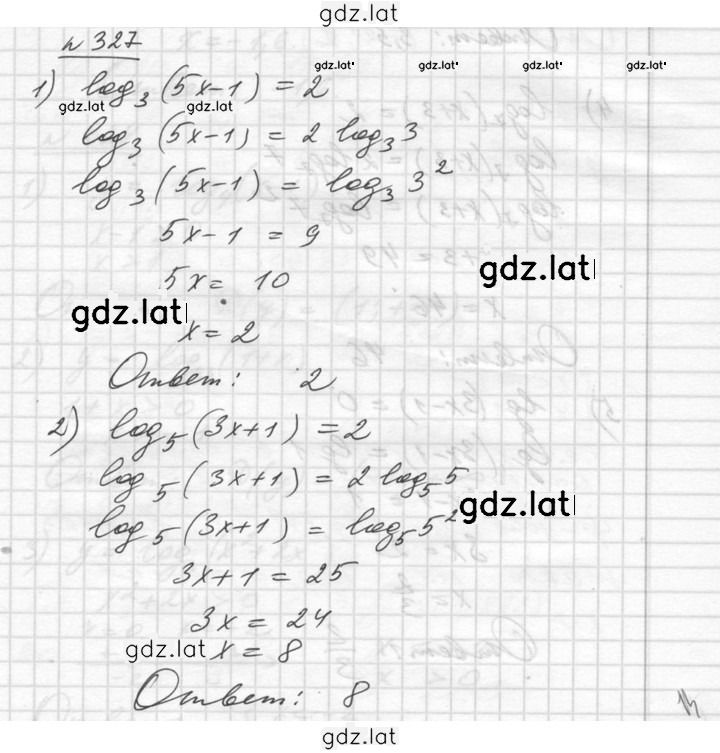 gdz.lat
№ 327
gdz.lat gdz.lat gdz.lat gdz.lat
1) log₃(5x-1) = 2
gdz.lat gdz.lat
log₃(5x-1) = 2 log₃3
log₃(5x-1) = log₃3²
5x-1 = 9
gdz.lat
5x = 10
gdz.lat
x = 2
Ответ: 2
2) log₅(3x+1) = 2
log₅(3x+1) = 2 log₅5
gdz.lat
log₅(3x+1) = log₅5²
3x+1 = 25
3x = 24
gdz.lat
x = 8
Ответ: 8
gdz.lat